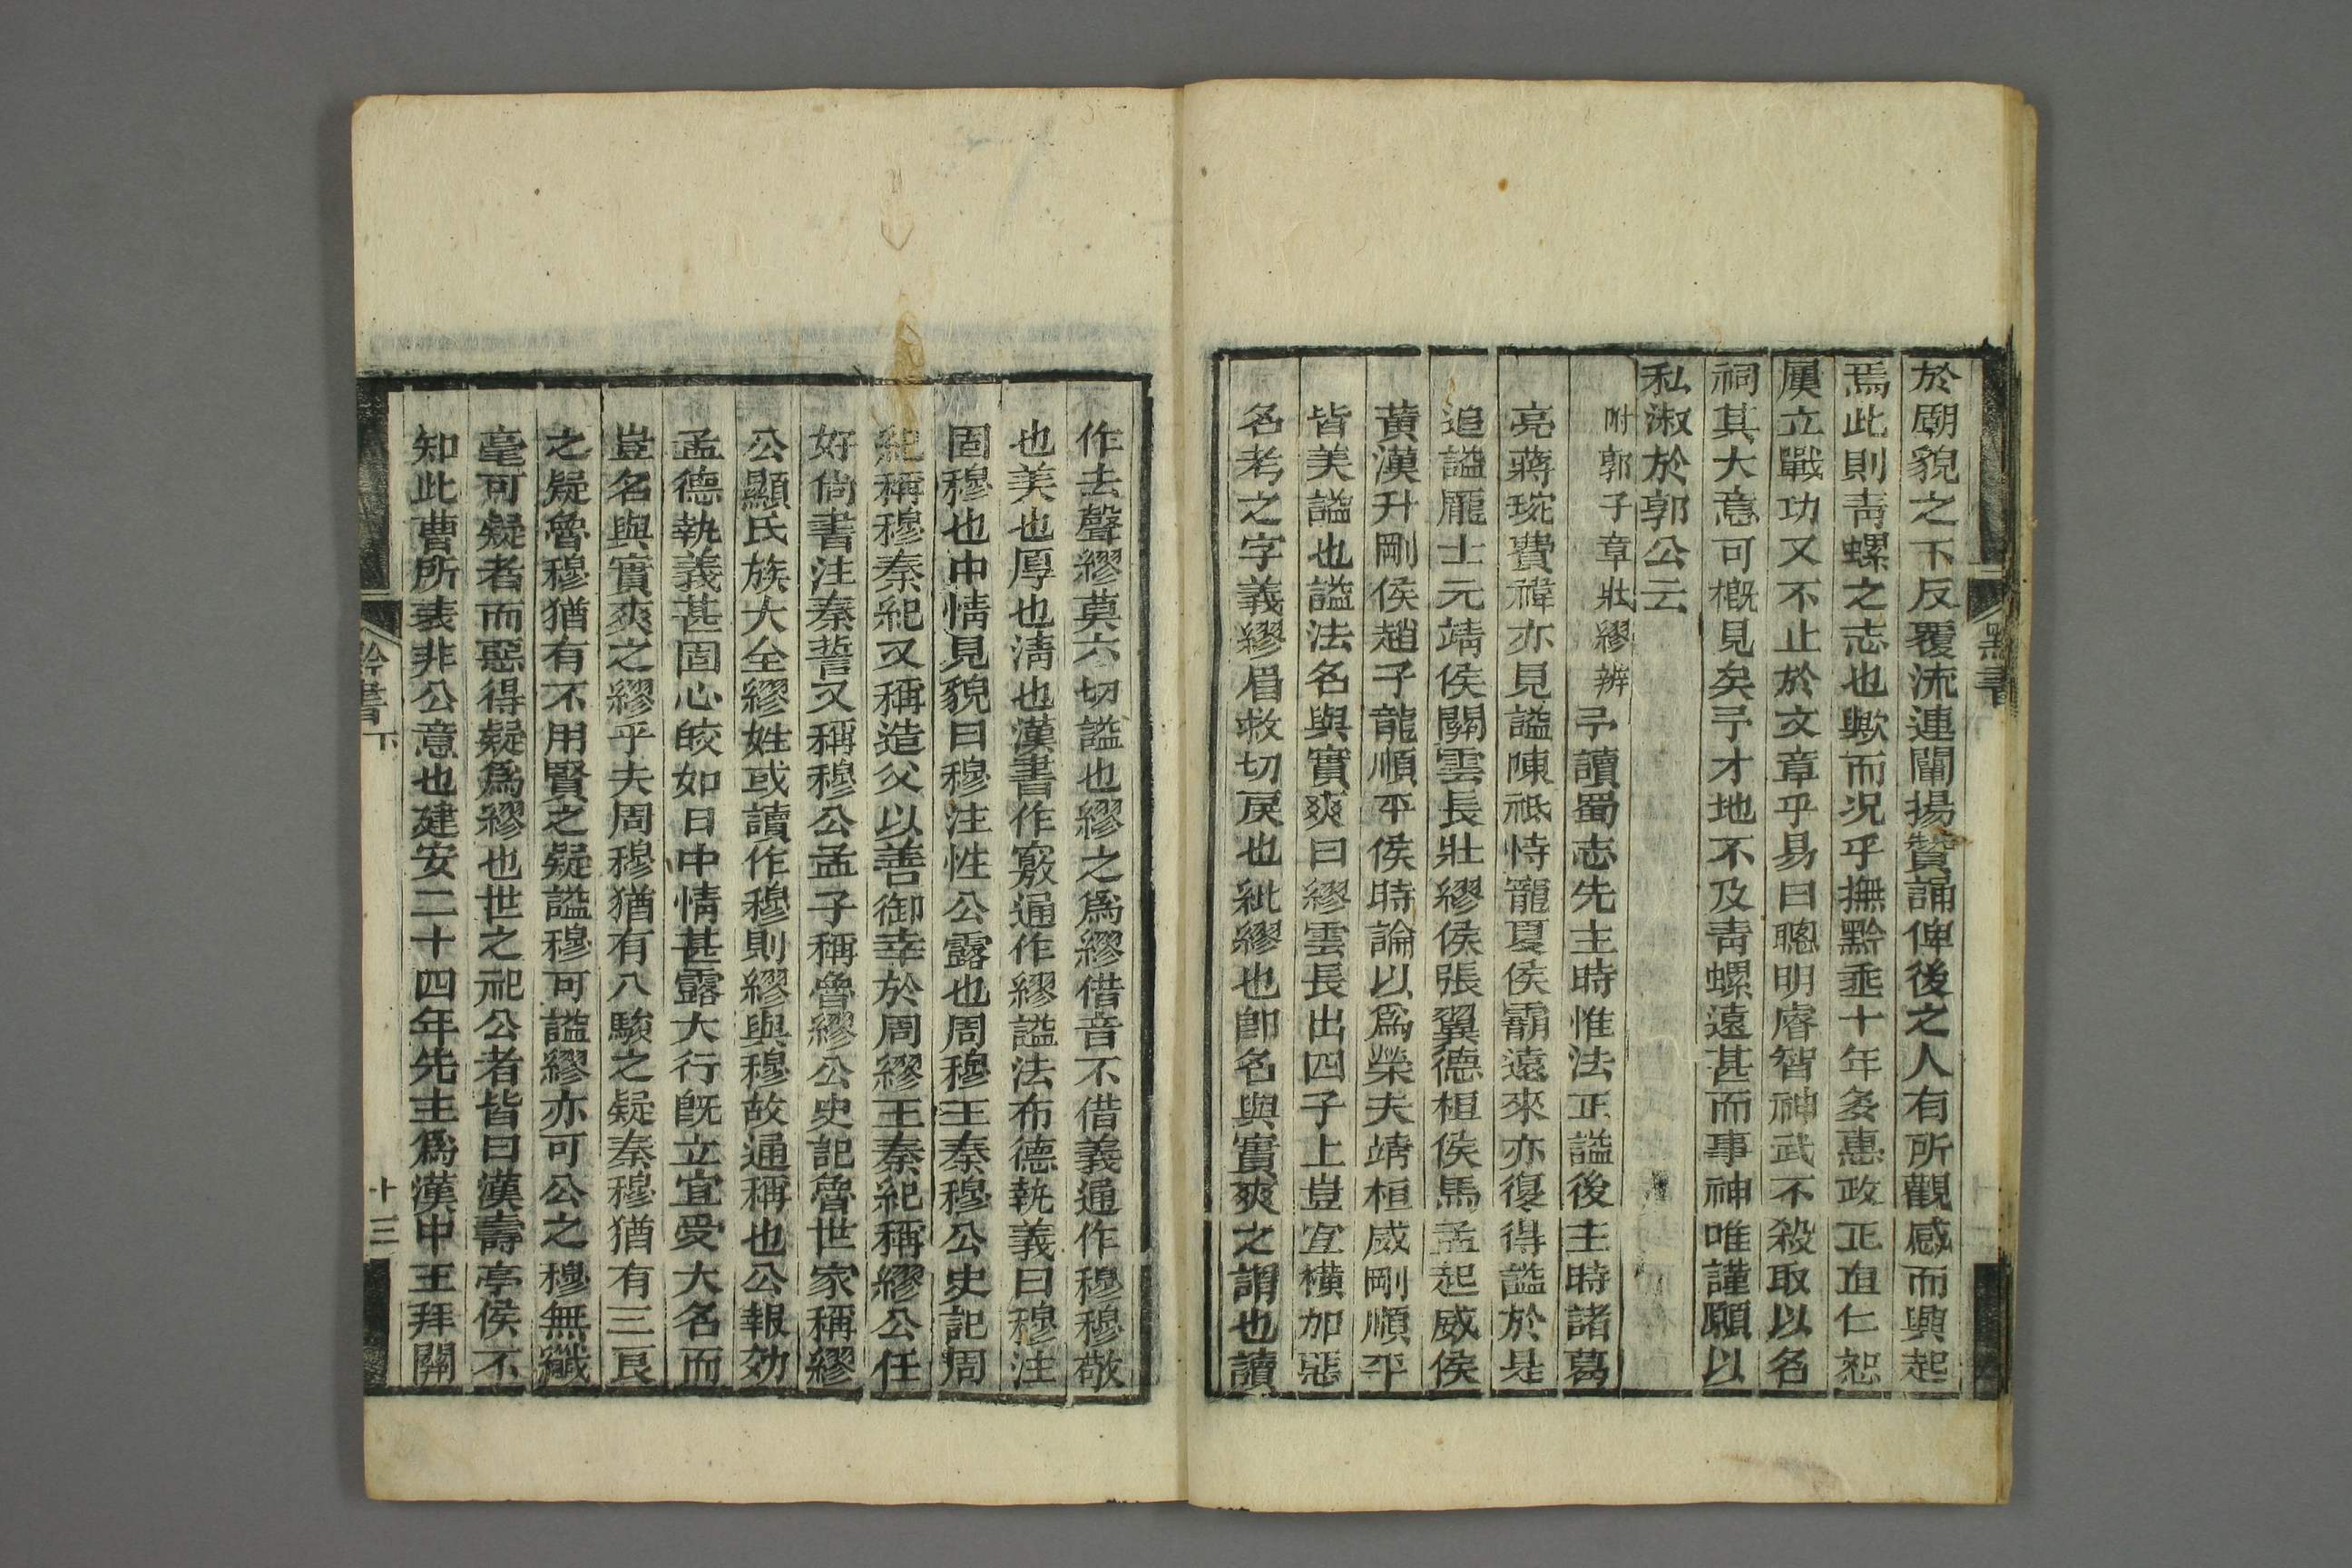 於廟貌之下反覆流連闡揚贊誦俾後之人有所觀感而興起
焉此則靑螺之志也歟而况乎撫黔埀十年多惠政正直仁恕
屢立戰功又不止於文章乎易曰聰明睿智神武不殺取以名
祠其大意可槪見矣予才地不及靑螺遠甚而事神唯謹願以
私淑於郭公云
附郭子章壯繆辨 予讀蜀志先主時惟法正謚後主時諸葛
亮蔣琬費禕亦見謚陳祗恃寵夏侯霸遠來亦復得謚於是
追謚龐士元靖侯關雲長壯繆侯張翼德桓侯馬孟起威侯
黃漢升剛侯趙子龍順平侯時論以爲榮夫靖桓威剛順平
皆美謚也謚法名與實爽曰繆雲長出四子上豈宜橫加惡
名考之字義繆眉救切戾也紕繆也卽名與實爽之謂也讀
黔書
下
作去聲繆莫六切謚也繆之爲繆借音不借義通作穆穆敬
也美也厚也淸也漢書作䅦通作繆謚法布德執義曰穆注
固穆也中情見貌曰穆注性公露也周穆王秦穆公史記周
紀稱穆秦紀又稱造父以善御幸於周繆王秦紀稱繆公任
好尙書注秦誓又稱穆公孟子稱魯繆公史記魯世家稱繆
公顯氏族大全繆姓或讀作穆則繆與穆故通稱也公報効
孟德執義甚固心皎如日中情甚露大行旣立宜受大名而
豈名與實爽之繆乎夫周穆猶有八駿之疑秦穆猶有三良
之疑魯穆猶有不用賢之疑謚穆可謚繆亦可公之穆無纖
毫可疑者而惡得疑爲繆也世之祀公者皆曰漢壽亭侯不
知此曹所表非公意也建安二十四年先主爲漢中王拜關
黔書
下
十三